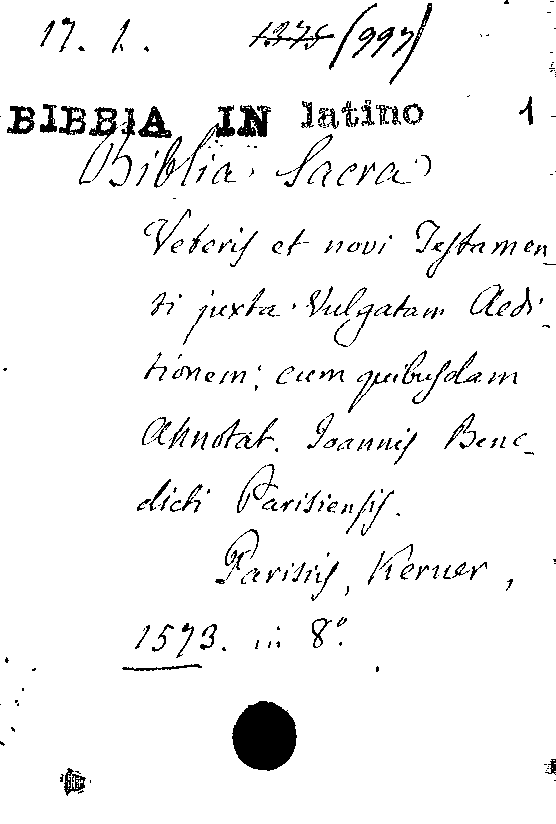 17. 1. 1375 (997)
BIBBIA IN latino 1
Biblia Sacra
Veteris et novi Testamen-
ti juxta Vulgatam Aedi-
tionem; cum quibusdam
Annotat. Joannis Bene-
dicti Parisiensis.
Parisiis, Kerver,
1573. in 8º.